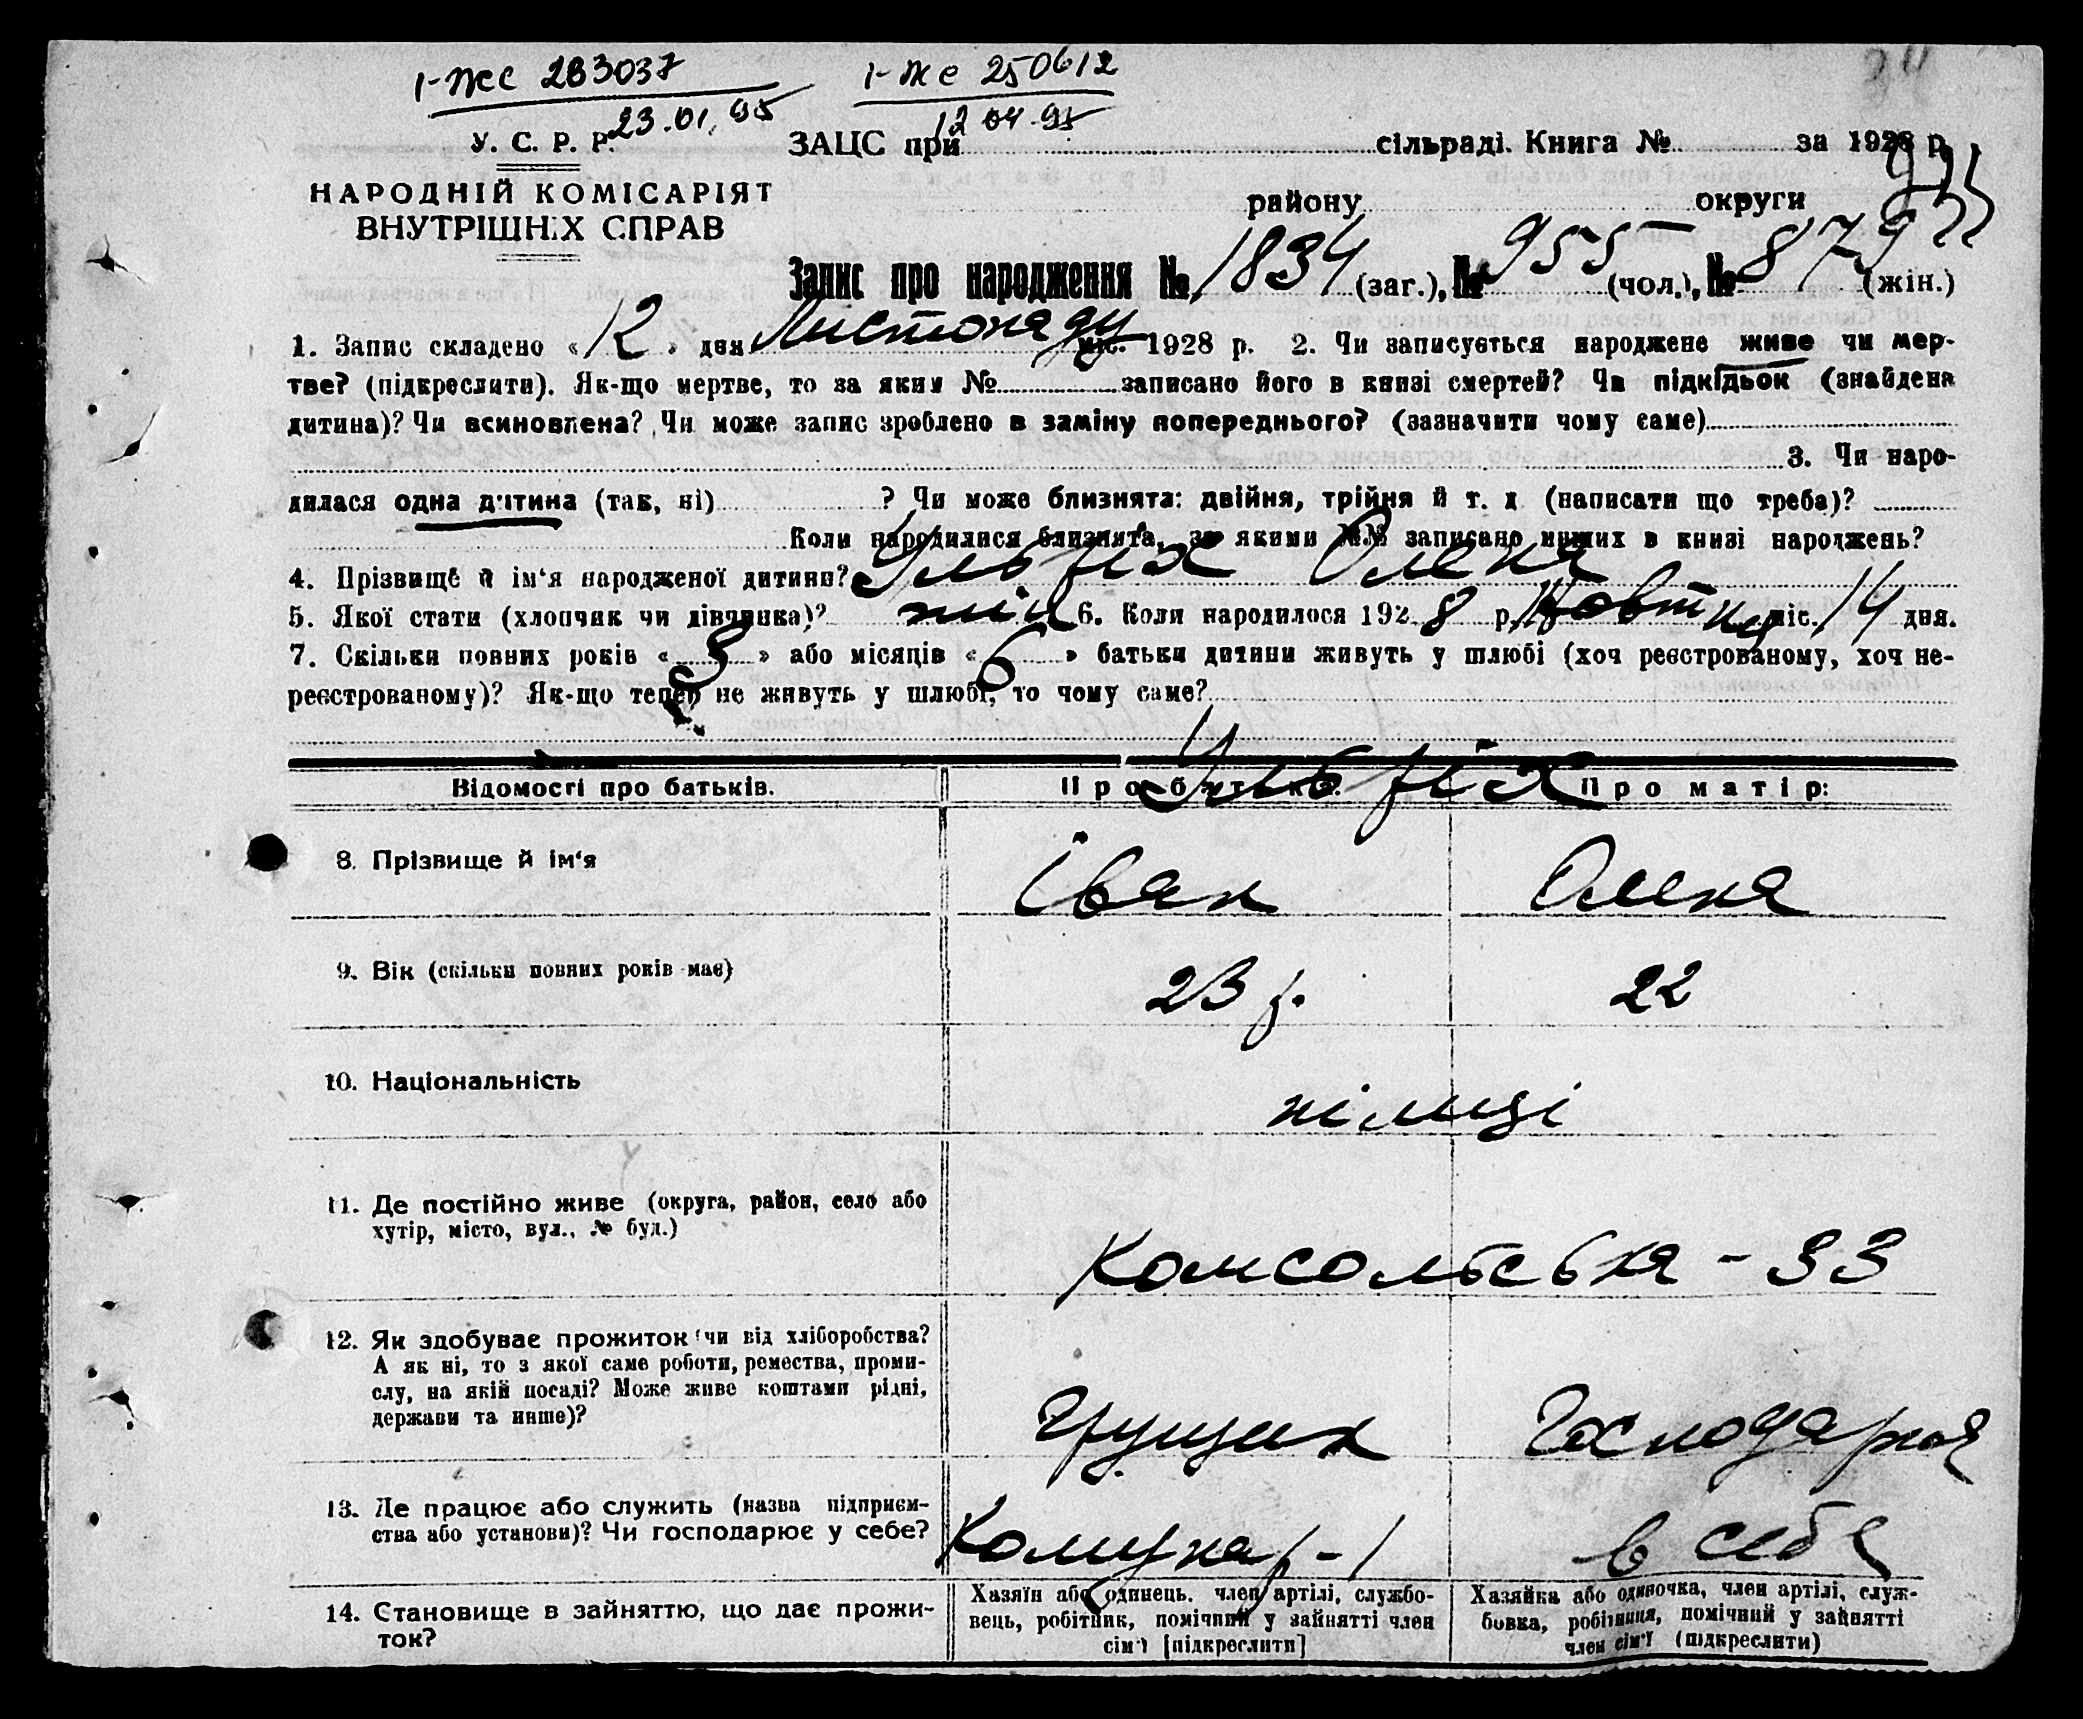 І-ЖС 283037
23.01.95
І-ЖС 250612
12 04.95
У. С. Р. Р.
ЗАЦС при сільраді. Книга № за 1928 р.
НАРОДНІЙ КОМІСАРІЯТ
ВНУТРІШНІХ СПРАВ
району округи
Запис про народження № 1834 (заг.), № 955 (чол.), № 879 (жін.)
1. Запис складено « 12 » дня Листопаду міс. 1928 р. 2. Чи записується народжене живе чи мер-
тве? (підкреслити). Як-що мертве, то за яким № записано його в книзі смертей? Чи підкідьок (знайдена
дитина)? Чи всиновлена? Чи може запис зроблено в заміну попереднього? (зазначити чому саме)
3. Чи наро-
дилася одна дитина (так, ні) ? Чи може близнята: двійня, трійня й т. д (написати що треба)?
Коли народилися близнята, за якими №№ записано инших в книзі народжень?
4. Прізвище й ім‘я народженої дитини? Ульріх Олена
5. Якої стати (хлопчик чи дівчинка)? жін 6. Коли народилося 192 8 р. Жовтня міс. 14 дня.
7. Скільки повних років « » або місяців « 6 » батьки дитини живуть у шлюбі (хоч реєстрованому, хоч не-
реєстрованому)? Як-що тепер не живуть у шлюбі, то чому саме?
Ульріх
Відомості про батьків. Про батька: Про матір:
8. Прізвище й ім‘я Іван Олена
9. Вік (скільки повних років має) 23 р. 22
10. Національність німці
11. Де постійно живе (округа, район, село або
хутір, місто, вул., № буд.)
Комсомольська - 33
12. Як здобуває прожиток (чи від хліборобства?
А як ні, то з якої саме роботи, ремества, проми-
слу, на якій посаді? Може живе коштами рідні,
держави та инше)?
Грущик Господарка
13. Де працює або служить (назва підприєм-
ства або установи)? Чи господарює у себе?
в себе
14. Становище в зайняттю, що дає прожи-
ток?
Хазяїн або одинець. член артілі, службо-
вець, робітник, помічний у зайнятті член
сім‘ї [підкреслити]
Хазяйка або одиночка, член артілі, служ-
бовка, робітниця, помічний у зайнятті
член сім‘ї (підкреслити)